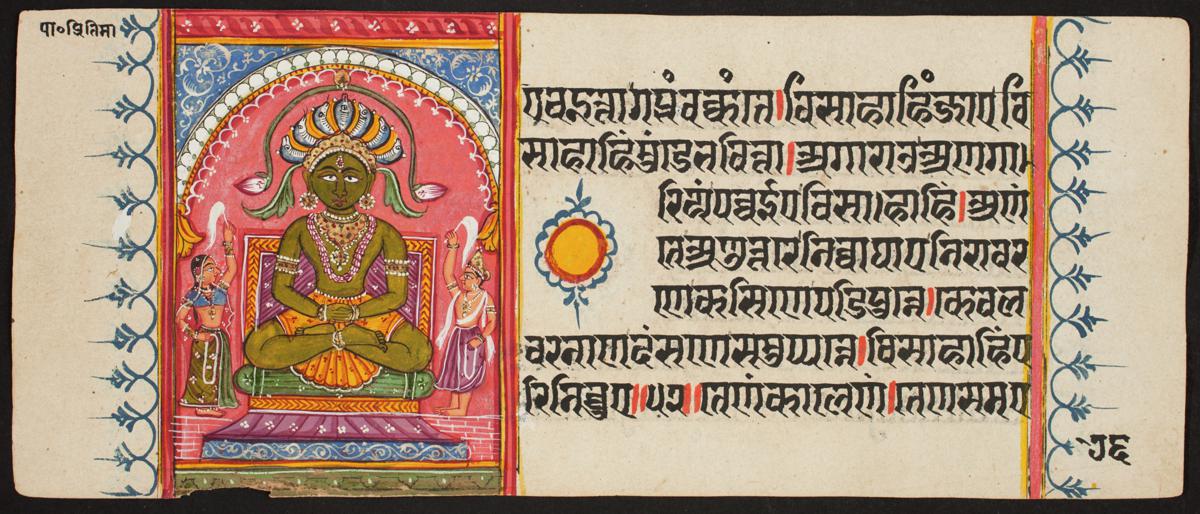 पा॰प्रतिमा
चइत्ता गप्भं वक्कंते। विसाहाहिं जाए वि
साहाहिं मुंडे भवित्ता। अगाराउ अणगा
रियं पव्वईए विसाहाहिं। अणं
ते अणुत्तरे निव्वाघाए निरावर
णे कसिणे पडिपुन्ने। केवल
वरनाणदंसणे समुप्पन्ने। विसाहाहिं प
रिनिव्वुए॥ ॥ तेणं कालेणं। तेणं समए